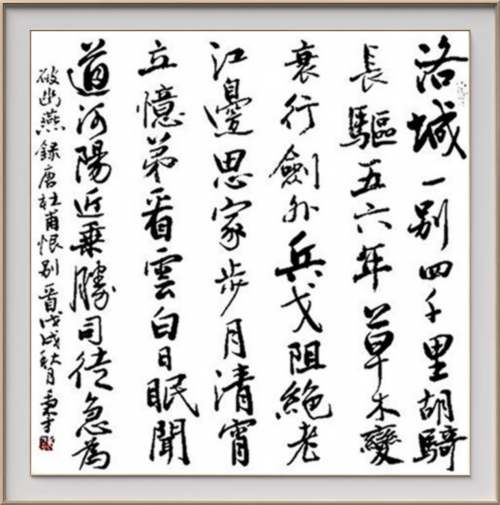 洛城一别四千里胡騎
長驅五六年草木變
衰行劍外兵戈阻絶老
江邊思家步月清宵
立憶弟看雲白日眠聞
道河陽近乗勝司徒急為
破幽燕録唐杜甫恨别戊戌秋月